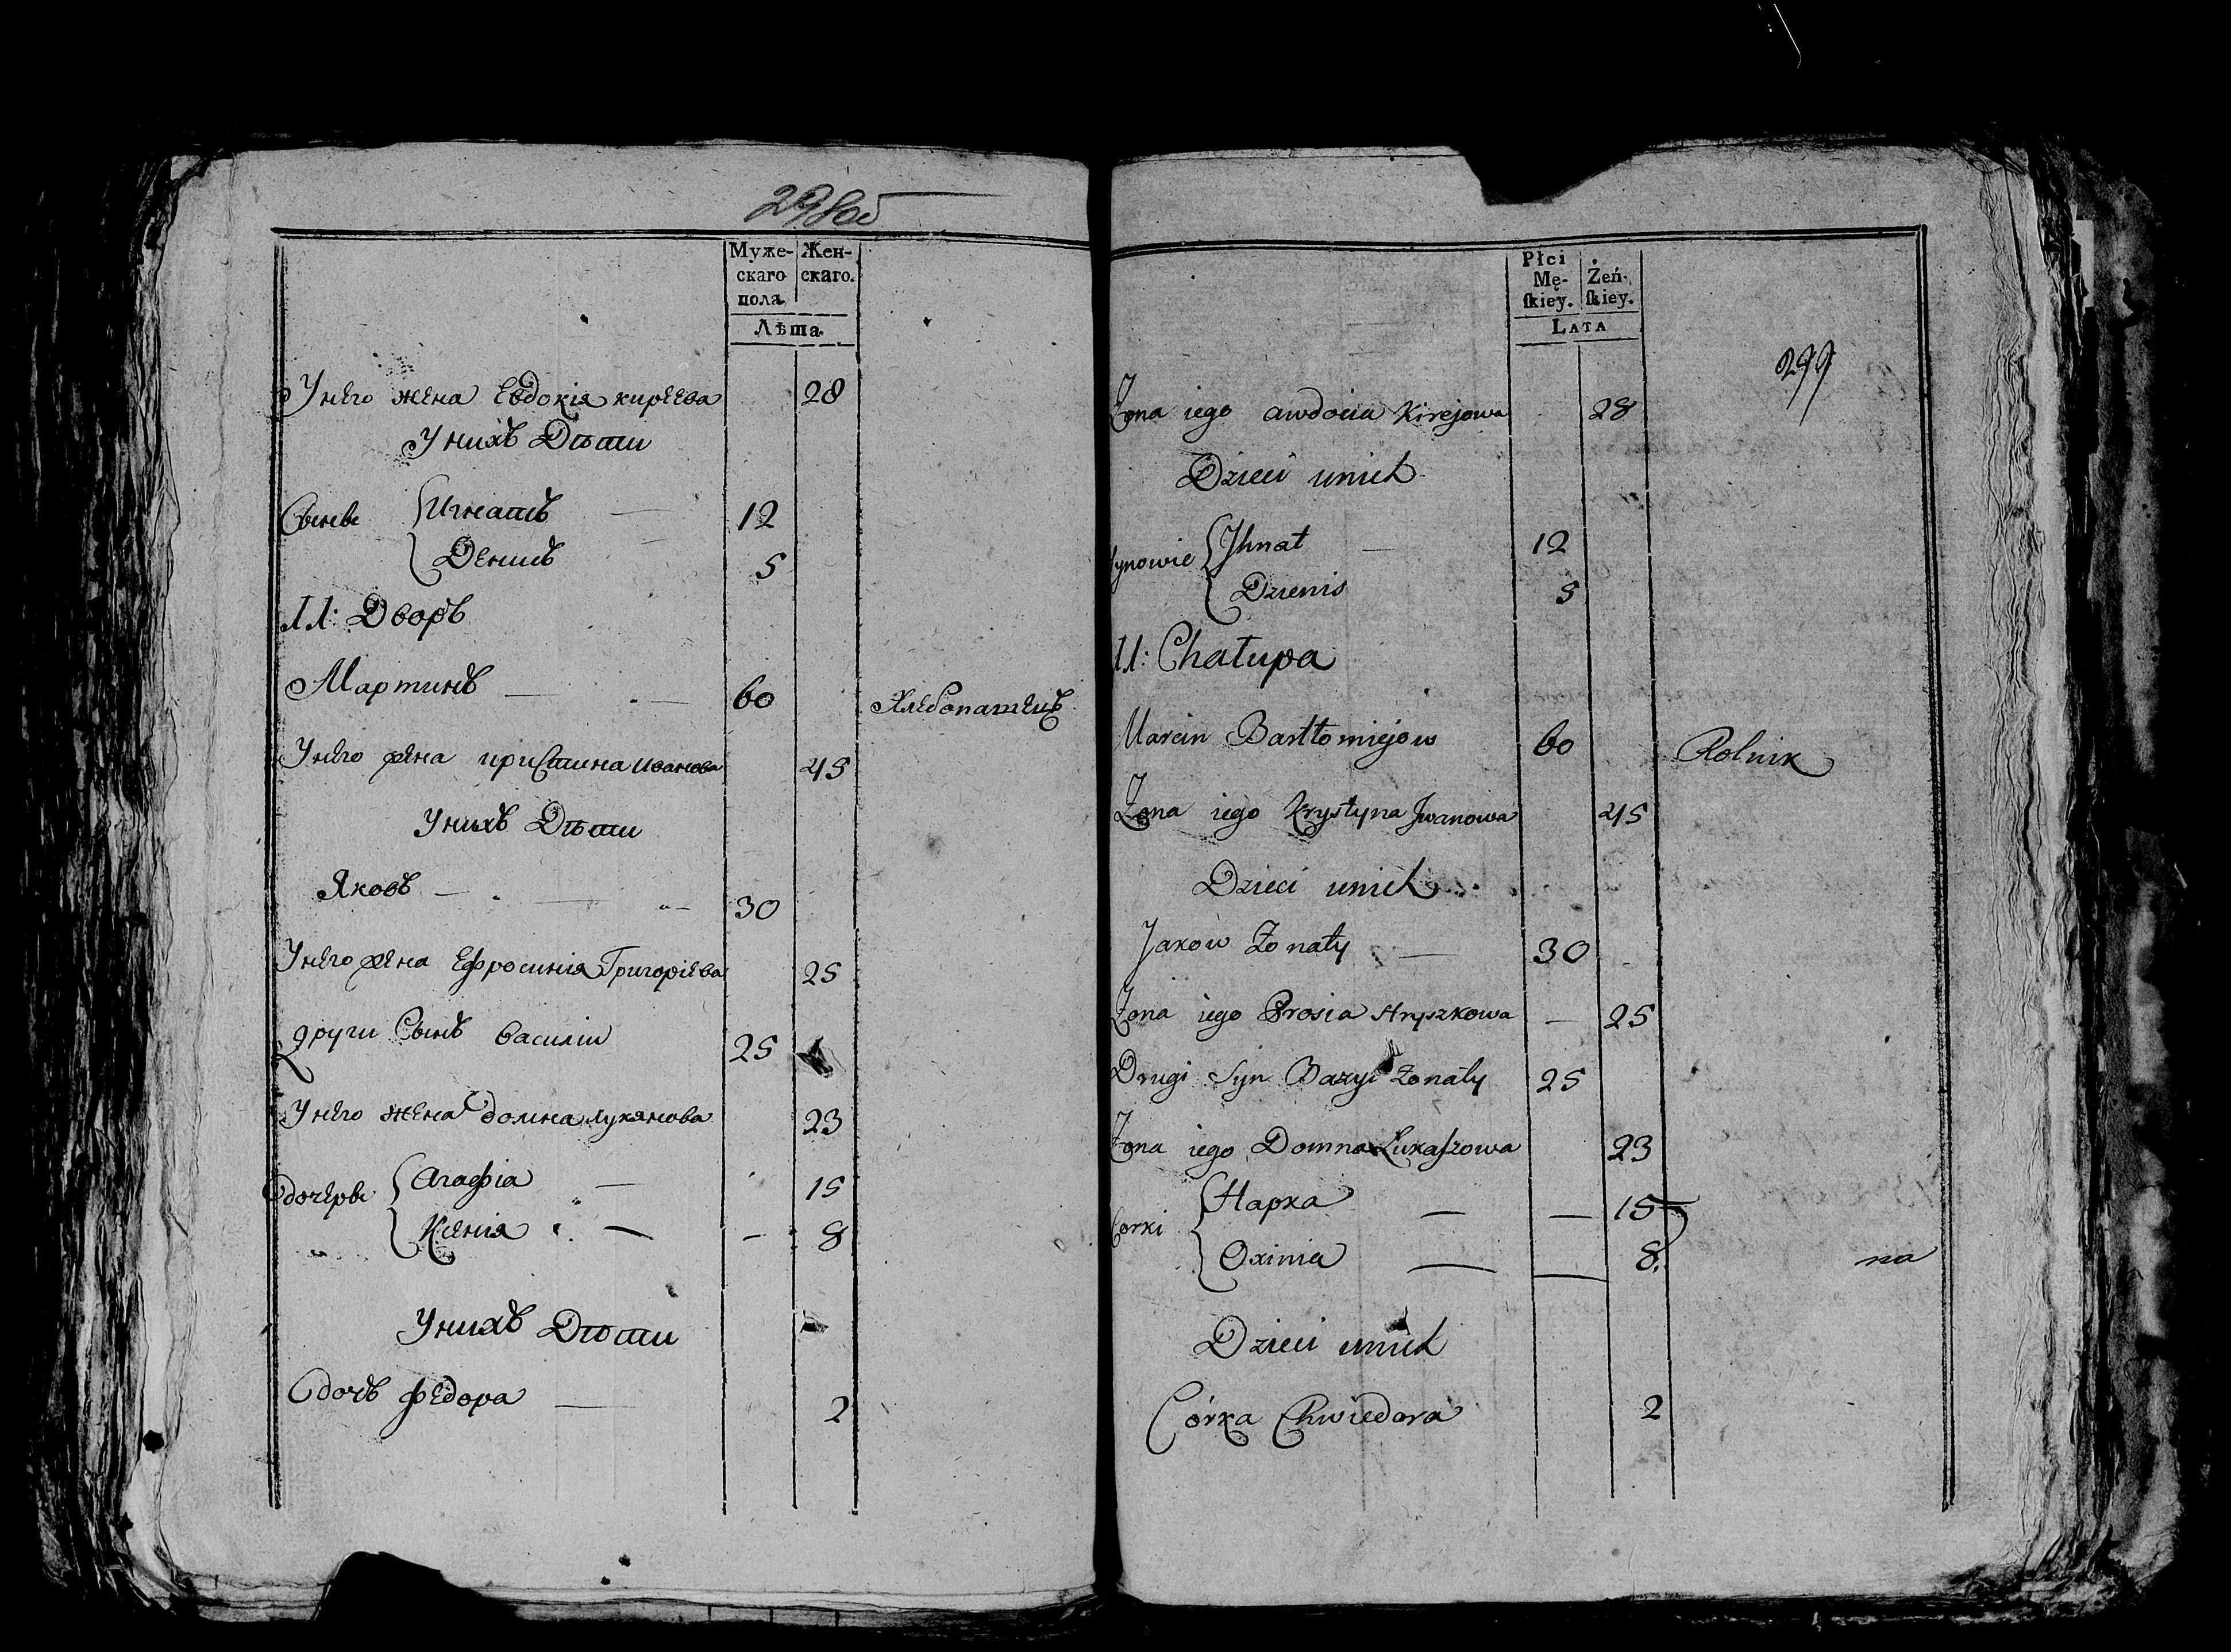 298об
Муже- Жен-
скаго скаго.
пола.
Лѣта.
Унего жена Евдокія киреева 28
Унихъ Дѣти
Сынвь Игнатъ — 12
Денисъ 5
11: Дворъ
Мартинъ — 60 Хлебопашецъ
Унего жена христина иванова 45
Унихъ Дѣти
Яковъ — 30
Унего жена Ефросинія Григоріева 25
други Сынъ василіи 25
Унего жена домна лукянова 23
дочерьвь Агафіа — 15
Ксенія — 8
Унихъ Дѣти
дочъ федора — 2
Płci
Mę- Żeń-
ſkiey. ſkiey.
LATA
299
Zona iego awdocia Kirejowa 28
Dzieci unich
synowie Jhnat — 12
Dzienis 5
11: Chałupa
Marcin Bartłomiejow 60 Rolnik
Zona iego Krystyna Jwanowa 45
Dzieci unich
Jakow Zonaty — 30
Zona iego Prosia Hryszkowa — 25
Drugi Syn Bazyl Zonaty 25
Zona iego Domna Łukaszowa 23
Corki Hapka — — 15
Oxinia — — 8. na
Dzieci unich
Córka Chwiedora 2